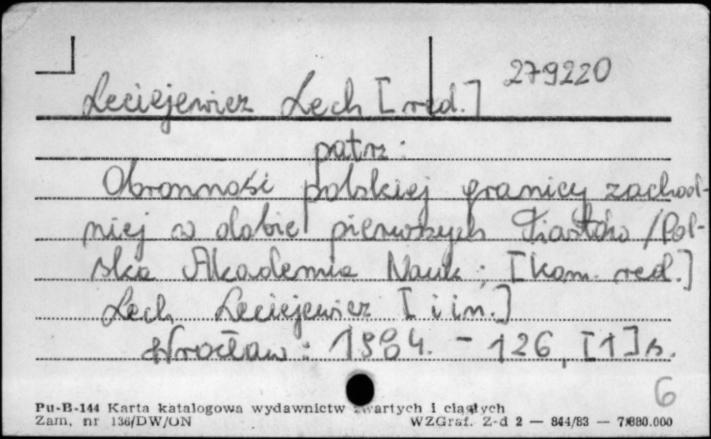 279220
Leciejewicz Lech [red.]
patrz:
Obronność polskiej granicy zachod-
niej w dobie pierwszych Piastów / Pol-
ska Akademia Nauk ; [kom. red.]
Lech Leciejewicz [i in.]
Wrocław : 1984. - 126, [1] s.
6
Pu-B-144 Karta katalogowa wydawnictw zwartych i ciągłych
Zam. nr 136/DW/ON WZGraf. Z-d 2 — 844/83 — 7.880.000